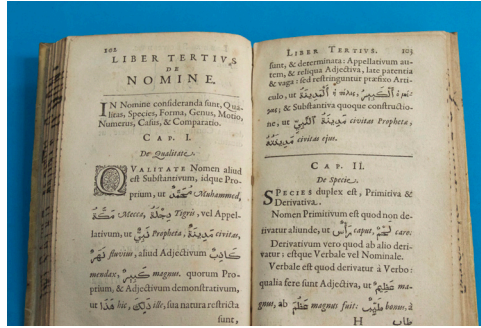 102
LIBER TERTIVS
DE
NOMINE.
IN Nomine consideranda sunt, Qua-
litas, Species, Forma, Genus, Motio,
Numerus, Casus, & Comparatio.
CAP. I.
De Qualitate.
QVALITATE Nomen aliud
est Substantivum, idque Pro-
prium, ut مُحَمَّد Muhammed,
مَكَّة Mecca, دِجْلَة Tigris, vel Appel-
lativum, ut نَبِيّ Propheta, مَدِينَة civitas,
نَهْر fluvius, aliud Adjectivum كَاذِب
mendax, كَبِير magnus. quorum Pro-
prium, & Adjectivum demonstrativum,
ut هٰذَا hic, ذٰلِكَ ille, sua natura restricta
sunt,
LIBER TERTIVS. 103
sunt, & determinata: Appellativum au-
tem, & reliqua Adjectiva, late patentia
& vaga: sed restringuntur præfixo Arti-
culo, ut اَلْمَدِينَة ἡ πόλις, اَلْكَبِير ὁ μέ-
γας; & Substantiva quoque constructio-
ne, ut مَدِينَة النَّبِيّ civitas Propheta,
مَدِينَتُهُ civitas ejus.
CAP. II.
De Specie.
SPECIES duplex est, Primitiva &
Derivativa.
Nomen Primitivum est quod non de-
rivatur aliunde, ut رَأْس caput, لَحْم caro:
Derivativum vero quod ab alio deri-
vatur: estque Verbale vel Nominale.
Verbale est quod derivatur à Verbo:
qualia fere sunt Adjectiva, ut عَظِيم ma-
gnus, ab عَظُمَ magnus fuit: طَيِّب bonus, à
H طَاب